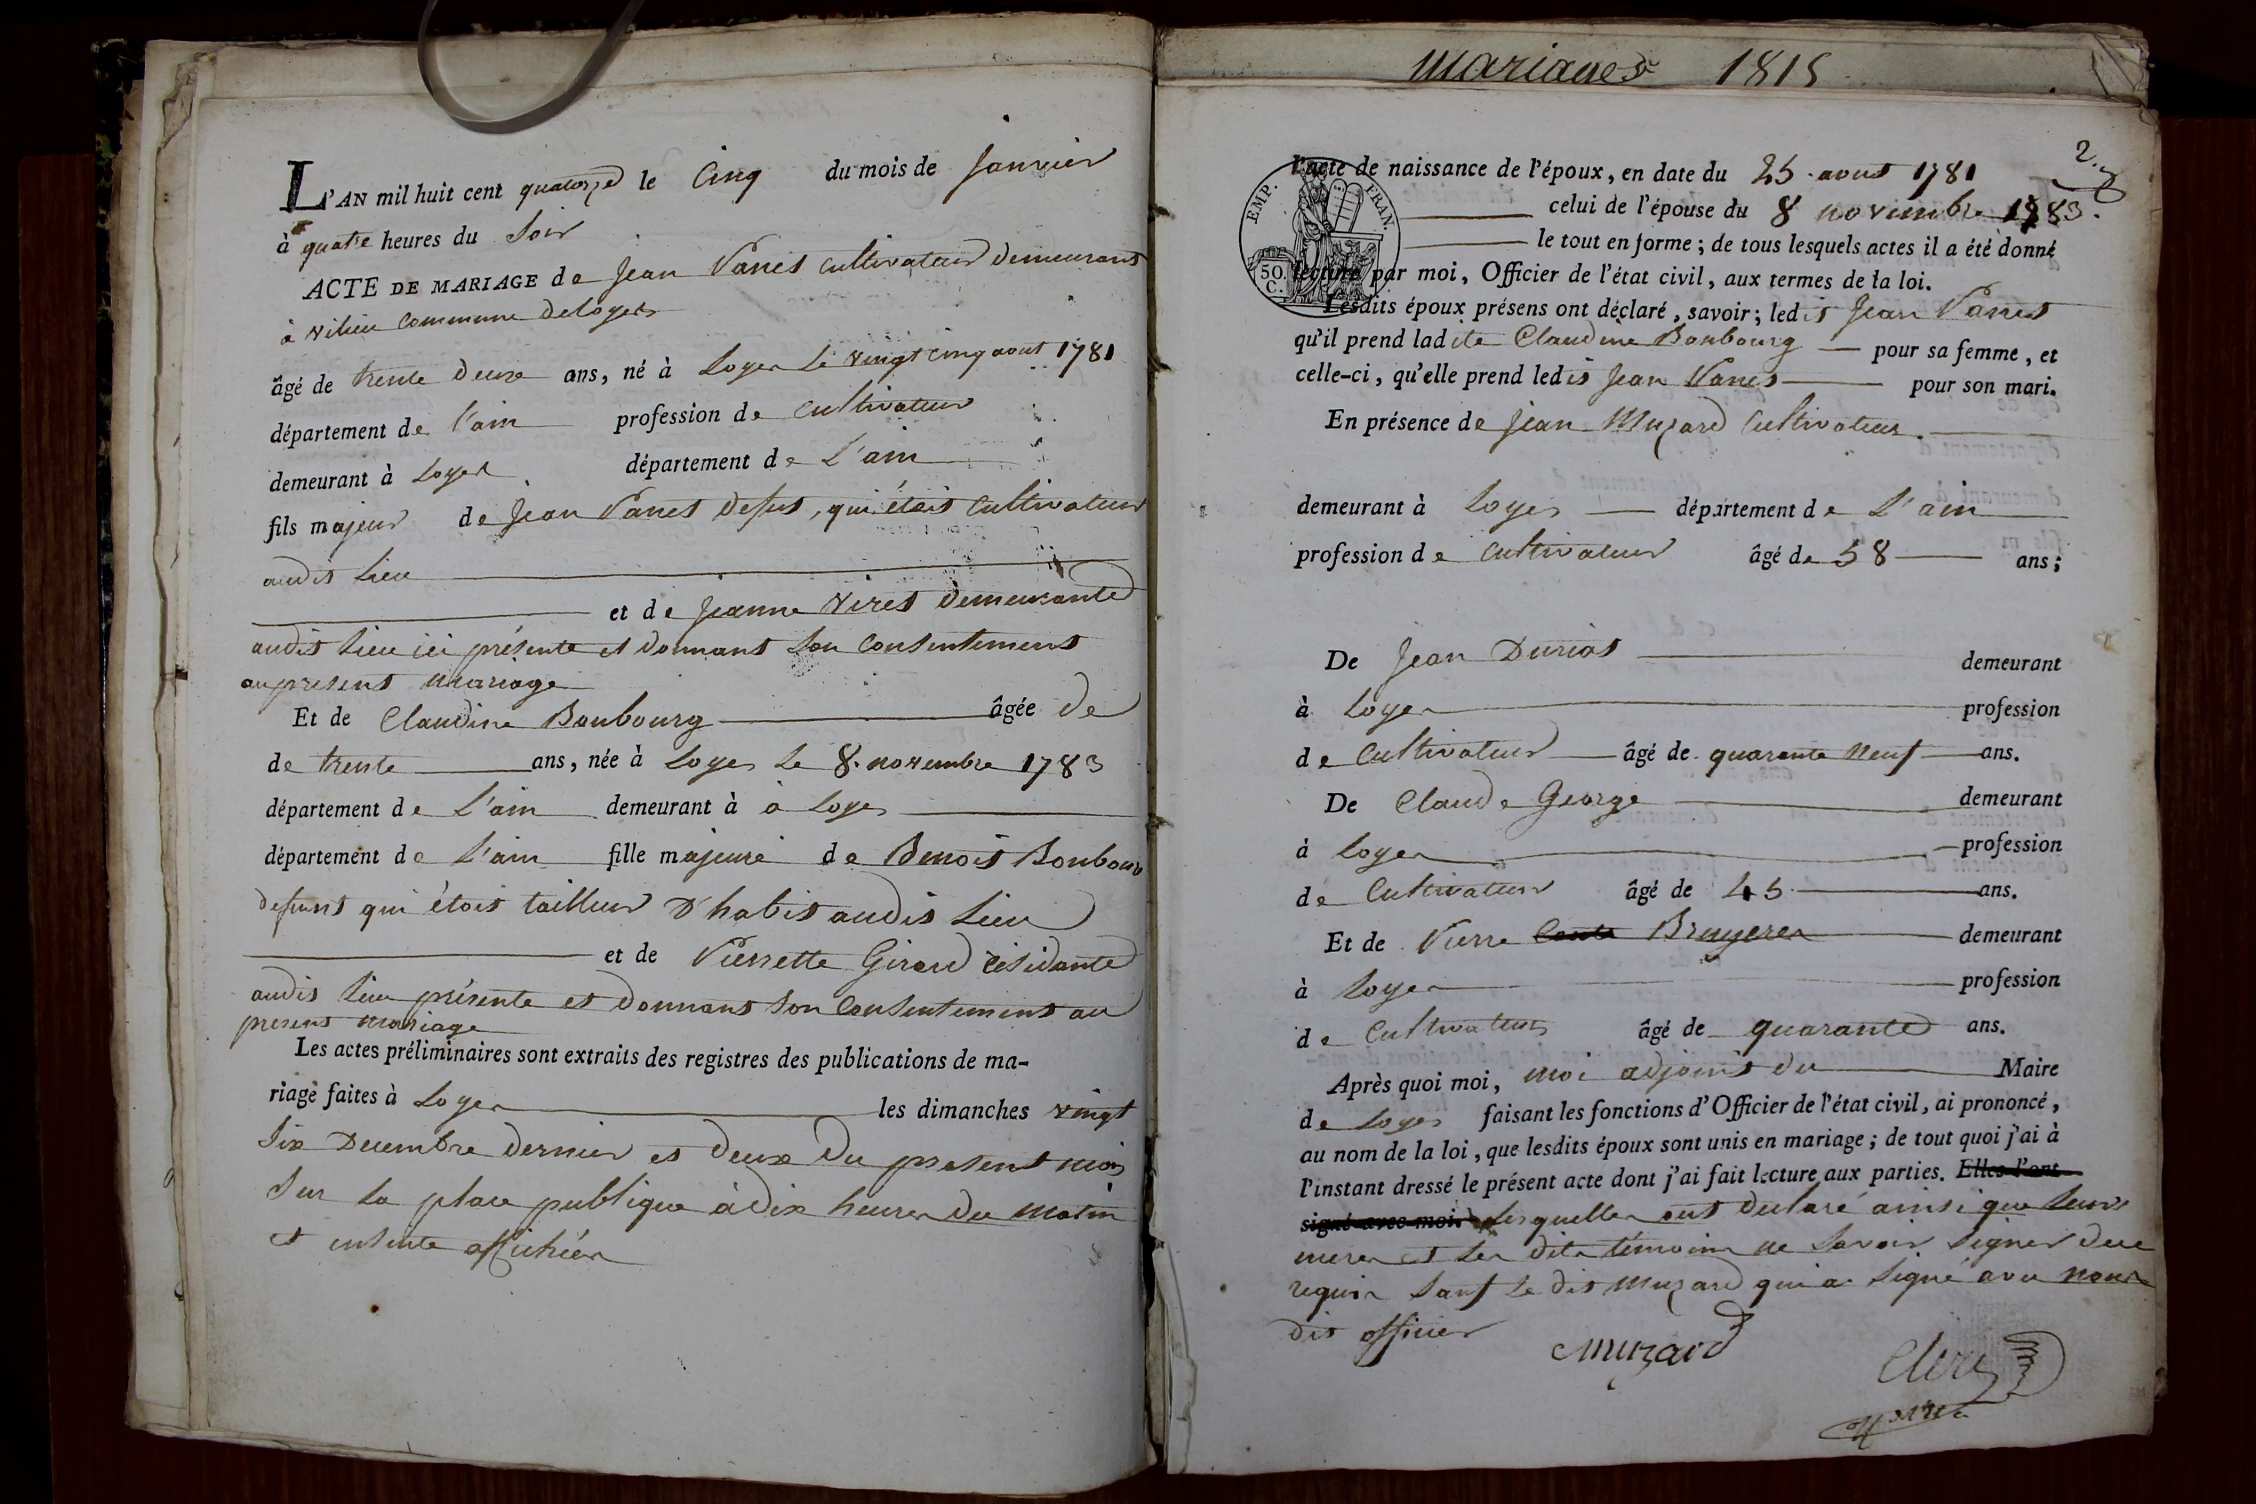 L'AN mil huit cent quatorze le Cinq du mois de Janvier
à quatre heures du Soir
ACTE DE MARIAGE de Jean Panet cultivateur demeurant
à vilieu commune de Loyes
âgé de trente deux ans, né à Loyes Le vingt cinq aout 1781
département de l'ain profession de cultivateur
demeurant à Loyes département de L'ain
fils majeur de Jean Panet defunt, qui étoit Cultivateur
audit Lieu
et de Jeanne viret demeurante
audit Lieu ici présente et donnant son consentement
au présent mariage
Et de Claudine Bonbourg âgée de
de trente ans, née à Loyes Le 8. novembre 1783
département de L'ain demeurant à à Loyes
département de L'ain fille majeure de Benoit Bonbour
defunt qui étoit tailleur D'habit audit Lieu
et de Pierrette Girard résidante
audit Lieu présente et donnant son consentement au
present mariage
Les actes préliminaires sont extraits des registres des publications de ma-
riage faites à Loyes les dimanches vingt
six Decembre dernier et deux du present mois
sur la place publique à dix heures du matin
et ensuite affichées
mariages 1815
2.
l'acte de naissance de l'époux, en date du 25. aout 1781
celui de l'épouse du 8 novembre 1783.
le tout en forme; de tous lesquels actes il a été donné
lecture par moi, Officier de l'état civil, aux termes de la loi.
EMP. FRAN.
50. C.
Lesdits époux présens ont déclaré, savoir; ledit Jean Panet
qu'il prend ladite Claudine Bonbourg pour sa femme, et
celle-ci, qu'elle prend ledit Jean Panet pour son mari.
En présence de Jean Muzard Cultivateur.
demeurant à Loyes département de L'ain
profession de cultivateur âgé de 58 ans;
De Jean Duriat demeurant
à Loyes profession
de Cultivateur âgé de quarante neuf ans.
De Claude George demeurant
à Loyes profession
de Cultivateur âgé de 45 ans.
Et de Pierre Bruyeres demeurant
à Loyes profession
de Cultivateur âgé de quarante ans.
Après quoi moi, moi adjoint du Maire
de Loyes faisant les fonctions d'Officier de l'état civil, ai prononcé,
au nom de la loi, que lesdits époux sont unis en mariage; de tout quoi j'ai à
l'instant dressé le présent acte dont j'ai fait lecture aux parties. Elles l'ont
signé avec moi. Lesquelles ont declaré ainsi que leurs
meres et les dits témoins ne savoir signer de ce
requis sauf le dit Muzard qui a signé avec nous
dit officier
Muzard
Clerc